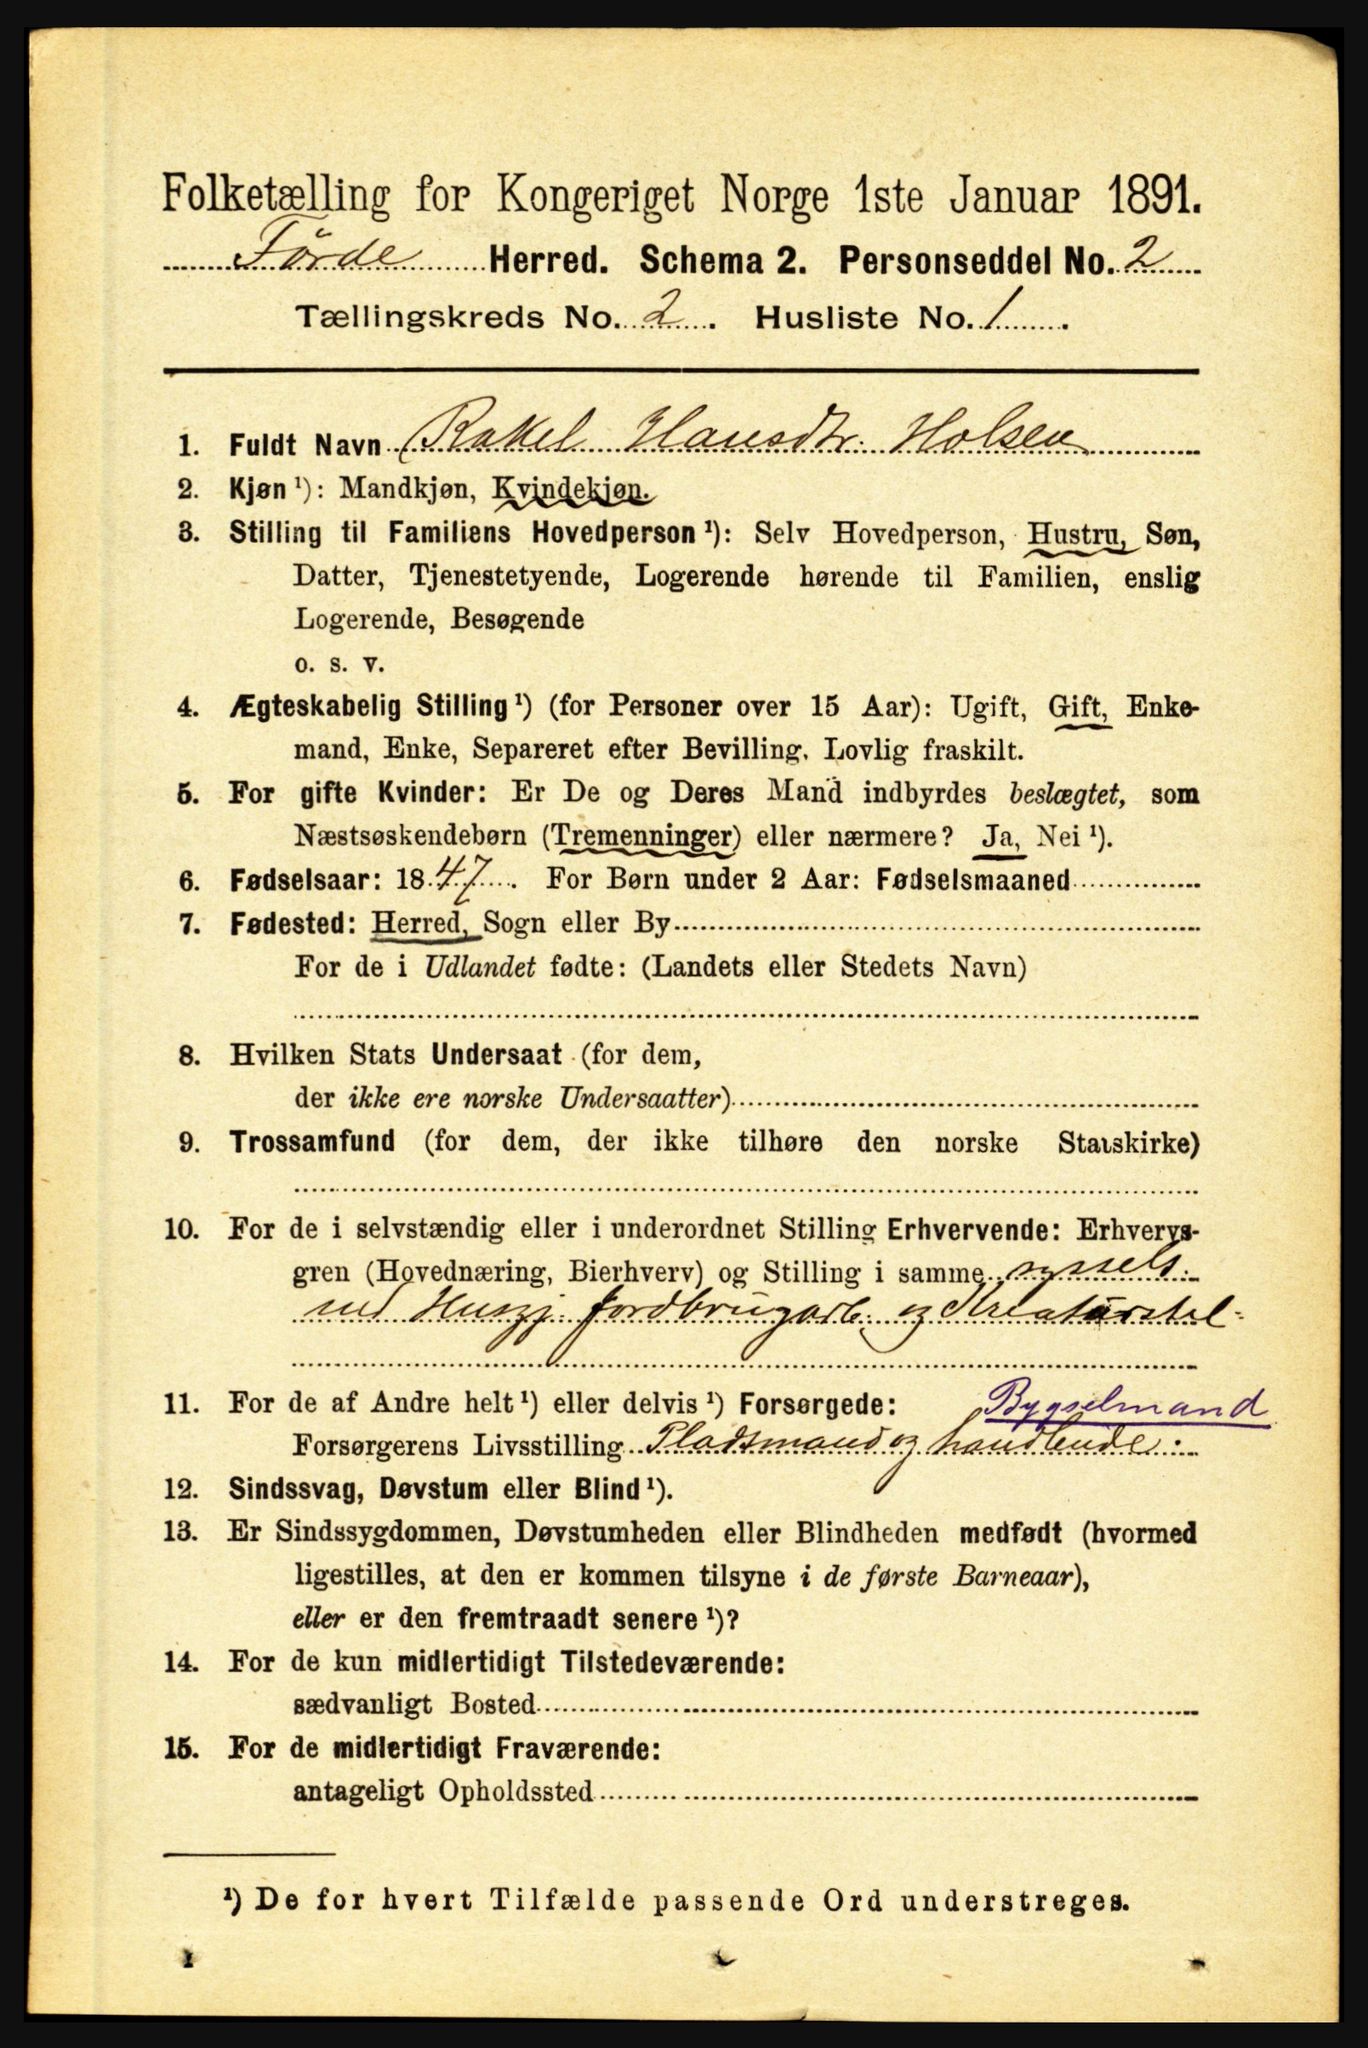 Folketælling for Kongeriget Norge 1ste Januar 1891.
Förde Herred. Schema 2. Personseddel No. 2
Tællingskreds No. 2. Husliste No. 1.
1. Fuldt Navn Rakel Hansdtr. Holsen
2. Kjøn ¹): Mandkjøn, Kvindekjøn.
3. Stilling til Familiens Hovedperson ¹): Selv Hovedperson, Hustru, Søn,
Datter, Tjenestetyende, Logerende hørende til Familien, enslig
Logerende, Besøgende
o. s. v.
4. Ægteskabelig Stilling ¹) (for Personer over 15 Aar): Ugift, Gift, Enke-
mand, Enke, Separeret efter Bevilling. Lovlig fraskilt.
5. For gifte Kvinder: Er De og Deres Mand indbyrdes beslægtet, som
Næstsøskendebørn (Tremenninger) eller nærmere? Ja, Nei ¹).
6. Fødselsaar: 1847. For Børn under 2 Aar: Fødselsmaaned
7. Fødested: Herred, Sogn eller By
For de i Udlandet fødte: (Landets eller Stedets Navn)
8. Hvilken Stats Undersaat (for dem,
der ikke ere norske Undersaatter)
9. Trossamfund (for dem, der ikke tilhøre den norske Statskirke)
10. For de i selvstændig eller i underordnet Stilling Erhvervende: Erhvervs-
gren (Hovednæring, Bierhverv) og Stilling i samme syssels.
med Husgj. Jordbrugarb. og Kreaturstel
11. For de af Andre helt ¹) eller delvis ¹) Forsørgede: Bygselmand
Forsørgerens Livsstilling Pladsmand og handlende.
12. Sindssvag, Døvstum eller Blind ¹).
13. Er Sindssygdommen, Døvstumheden eller Blindheden medfødt (hvormed
ligestilles, at den er kommen tilsyne i de første Barneaar),
eller er den fremtraadt senere ¹)?
14. For de kun midlertidigt Tilstedeværende:
sædvanligt Bosted
15. For de midlertidigt Fraværende:
antageligt Opholdssted
¹) De for hvert Tilfælde passende Ord understreges.